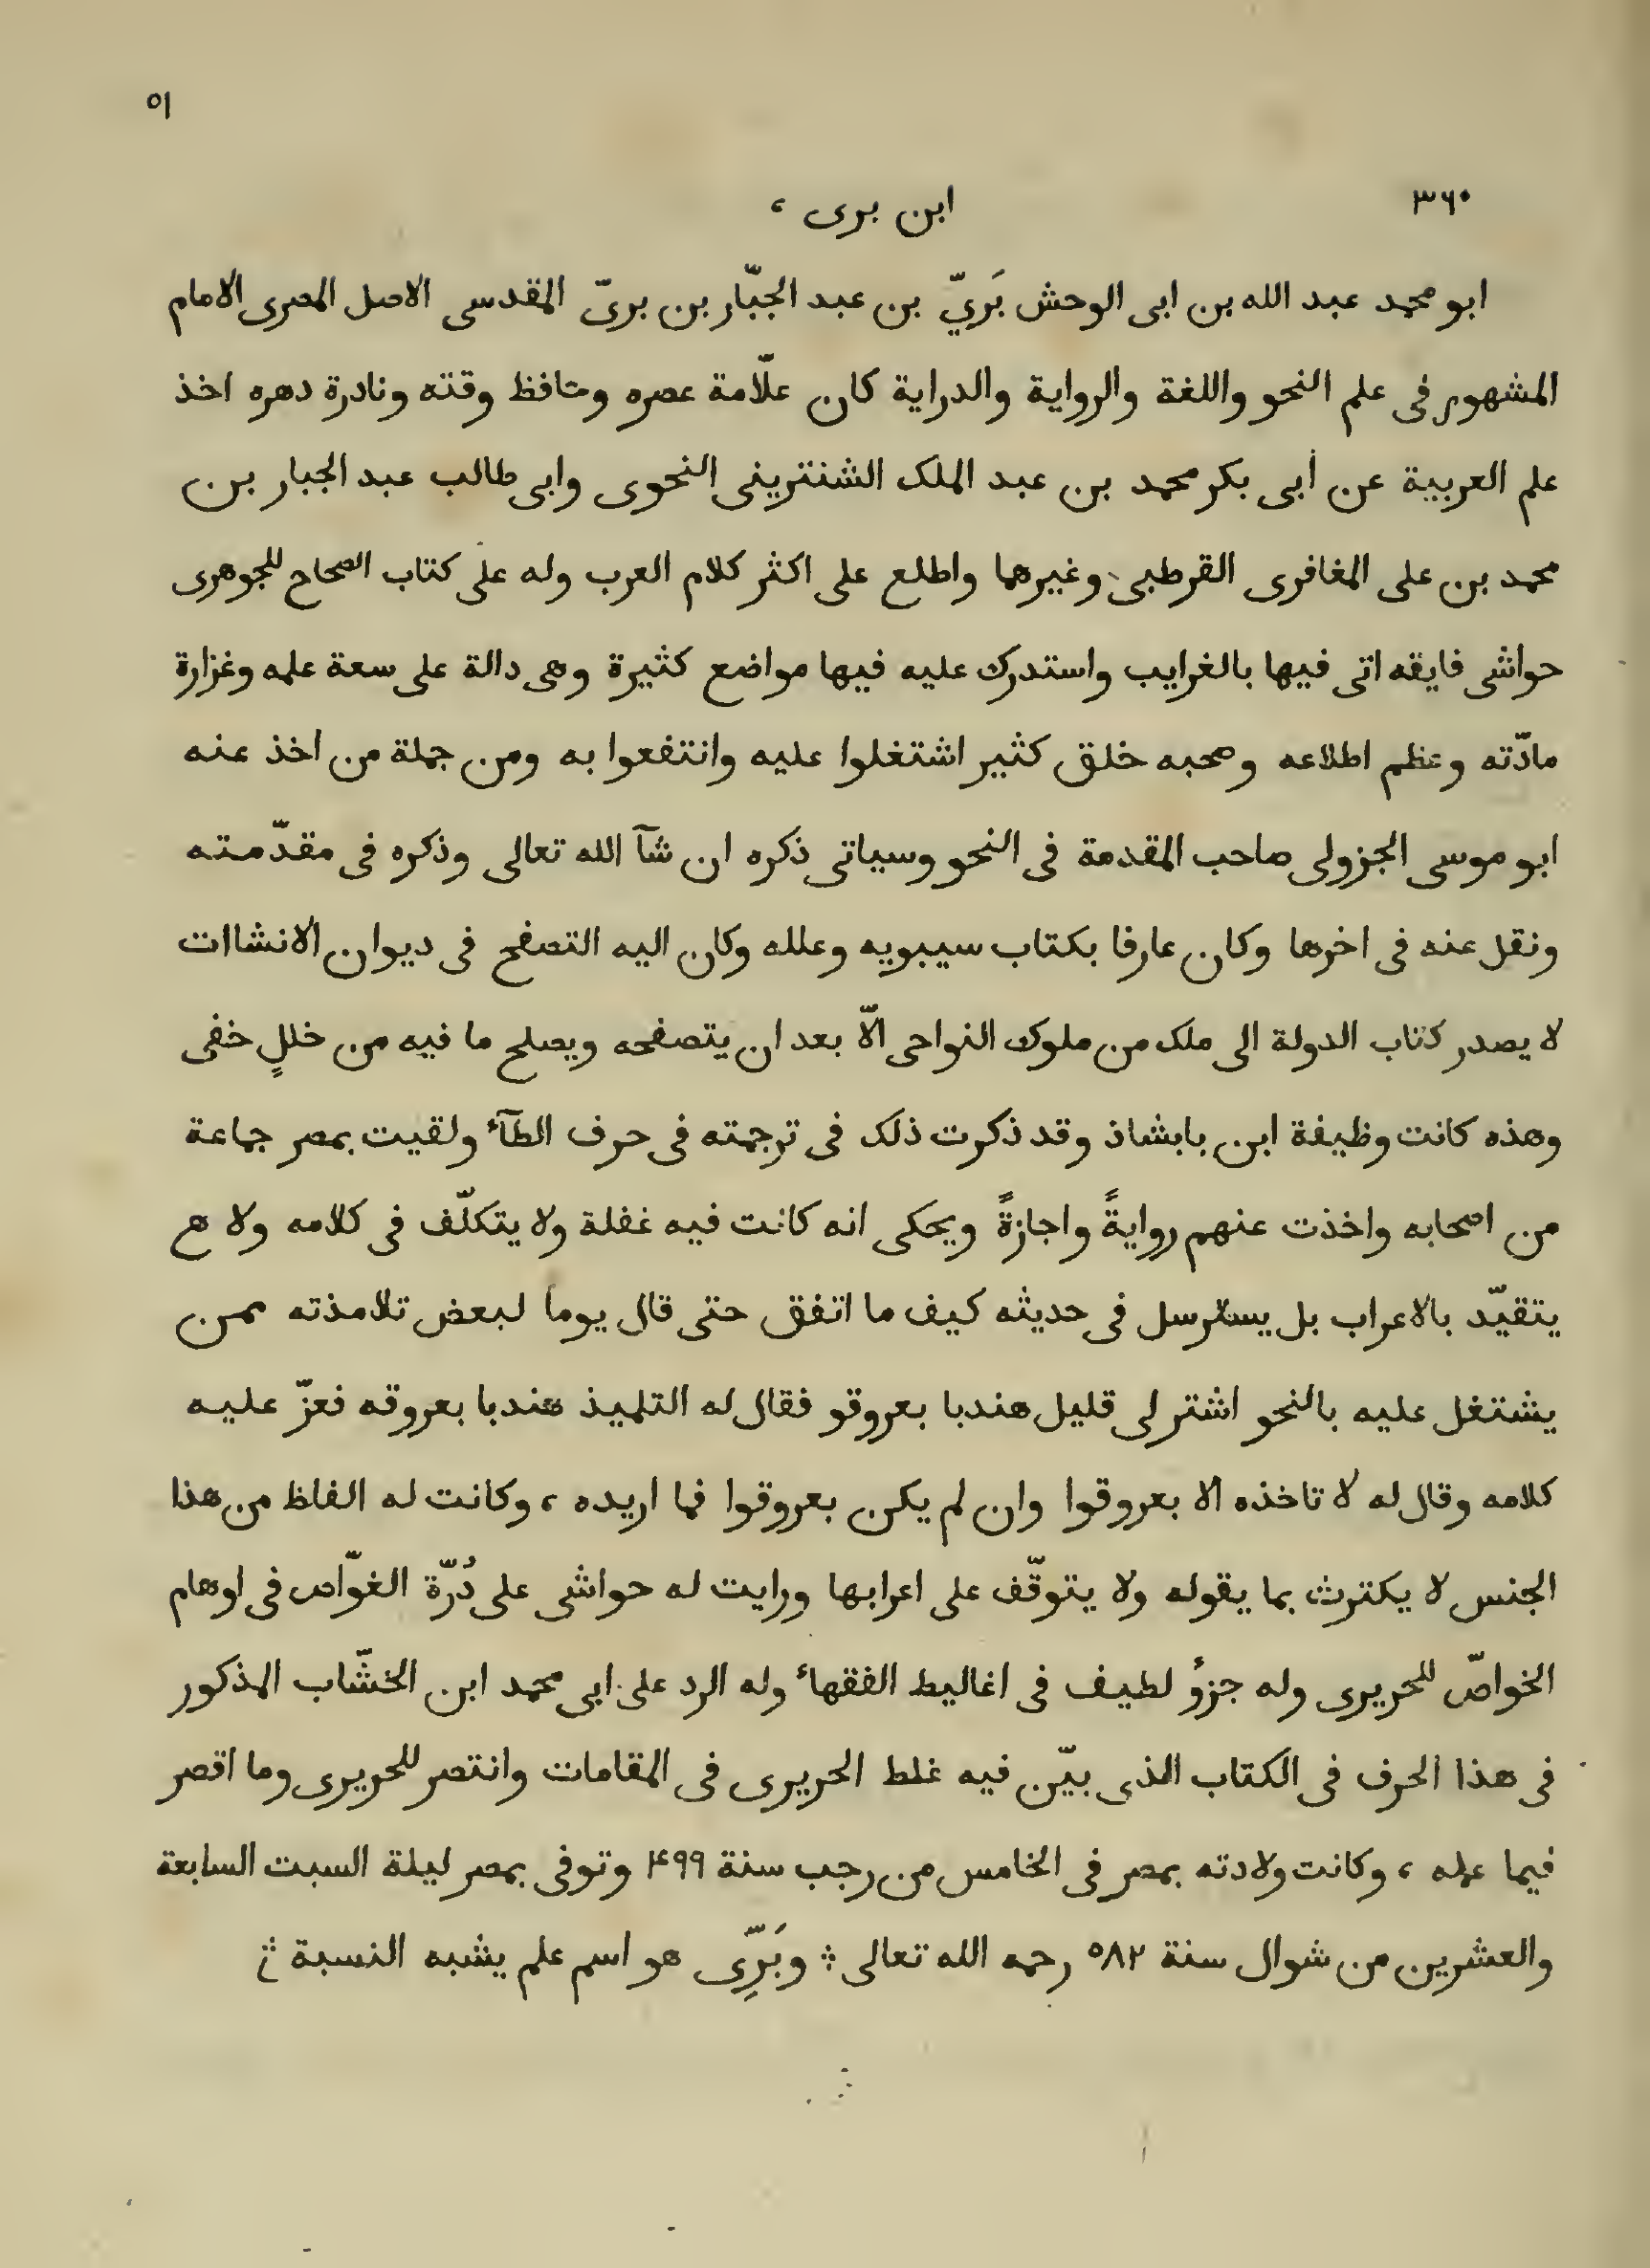 ٥١
٣٦٠
ابن برى ،
ابو محمد عبد الله بن ابى الوحش بَريّ بن عبد الجبّار بن برىّ المقدسى الاصل المصرى الامام
المشهور فى علم النحو واللغة والرواية والدراية كان علّامة عصره وحافظ وقته ونادرة دهره اخذ
علم العربية عن أبى بكر محمد بن عبد الملك الشنترينى النحوى وابى طالب عبد الجبار بن
محمد بن على المغافرى القرطبى وغيرهما واطلع على اكثر كلام العرب وله على كتاب الصحاح للجوهرى
حواشى فايقه اتى فيها بالغرايب واستدرك عليه فيها مواضع كثيرة وهى دالة على سعة علمه وغزارة
مادّته وعظم اطلاعه وصحبه خلق كثير اشتغلوا عليه وانتفعوا به ومن جملة من اخذ عنه
ابو موسى الجزولى صاحب المقدمة فى النحو وسياتى ذكره ان شآ الله تعالى وذكره فى مقدّمته
ونقل عنه فى اخرها وكان عارفا بكتاب سيبويه وعلله وكان اليه التصفح فى ديوان الانشاات
لا يصدر كتاب الدولة الى ملك من ملوك النواحى الّا بعد ان يتصفحه ويصلح ما فيه من خللٍ خفى
وهذه كانت وظيفة ابن بابشاذ وقد ذكرت ذلك فى ترجمته فى حرف الطآء ولقيت بمصر جماعة
من اصحابه واخذت عنهم روايةً واجازةً ويحكى انه كانت فيه غفلة ولا يتكلّف فى كلامه ولا
يتقيّد بالاعراب بل يسترسل فى حديثه كيف ما اتفق حتى قال يوما لبعض تلامذته ممن
يشتغل عليه بالنحو اشتر لى قليل هندبا بعروقو فقال له التلميذ هندبا بعروقه فعزّ عليه
كلامه وقال له لا تاخذه الا بعروقوا وان لم يكن بعروقوا فما اريده ، وكانت له الفاظ من هذا
الجنس لا يكترث بما يقوله ولا يتوقّف على اعرابها ورايت له حواشى على دُرّة الغوّاص فى اوهام
الخواصّ للحريرى وله جزؤ لطيف فى اغاليط الفقهاء وله الرد على ابى محمد ابن الخشّاب المذكور
فى هذا الحرف فى الكتاب الذى بيّن فيه غلط الحريرى فى المقامات وانتصر للحريرى وما اقصر
فيما عمله ، وكانت ولادته بمصر فى الخامس من رجب سنة ۴۹۹ وتوفى بمصر ليلة السبت السابعة
والعشرين من شوال سنة ٥٨٢ رحمه الله تعالى ؞ وبَرِّى هو اسم علم يشبه النسبة